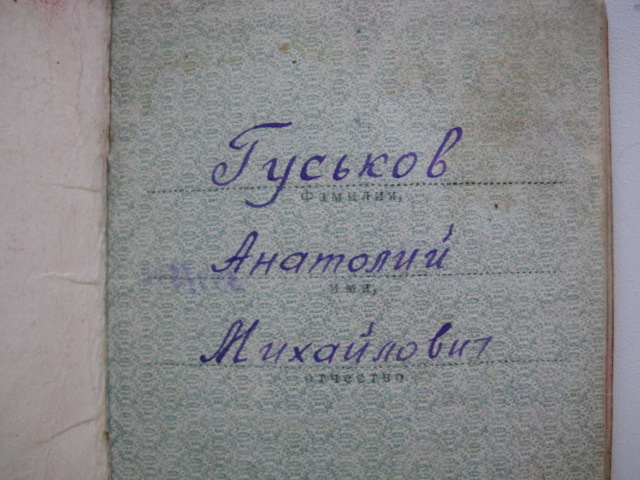 Гуськов
фамилия,
Анатолий
имя,
Михайлович
отчество